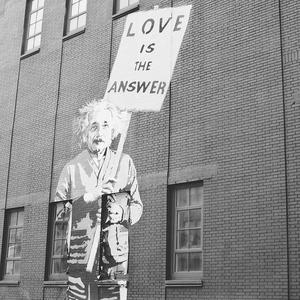 LOVE
IS
THE
ANSWER